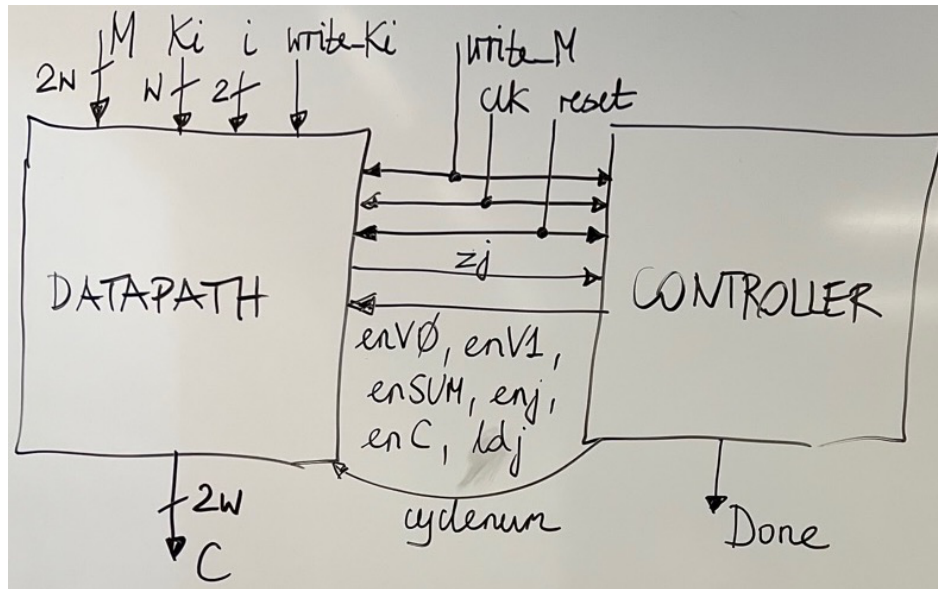 M Ki i write_Ki write_M
2w w 2 clk reset
zj
DATAPATH CONTROLLER
enVØ, enV1,
enSUM, enj,
enC, ldj
2w cyclenum
C Done